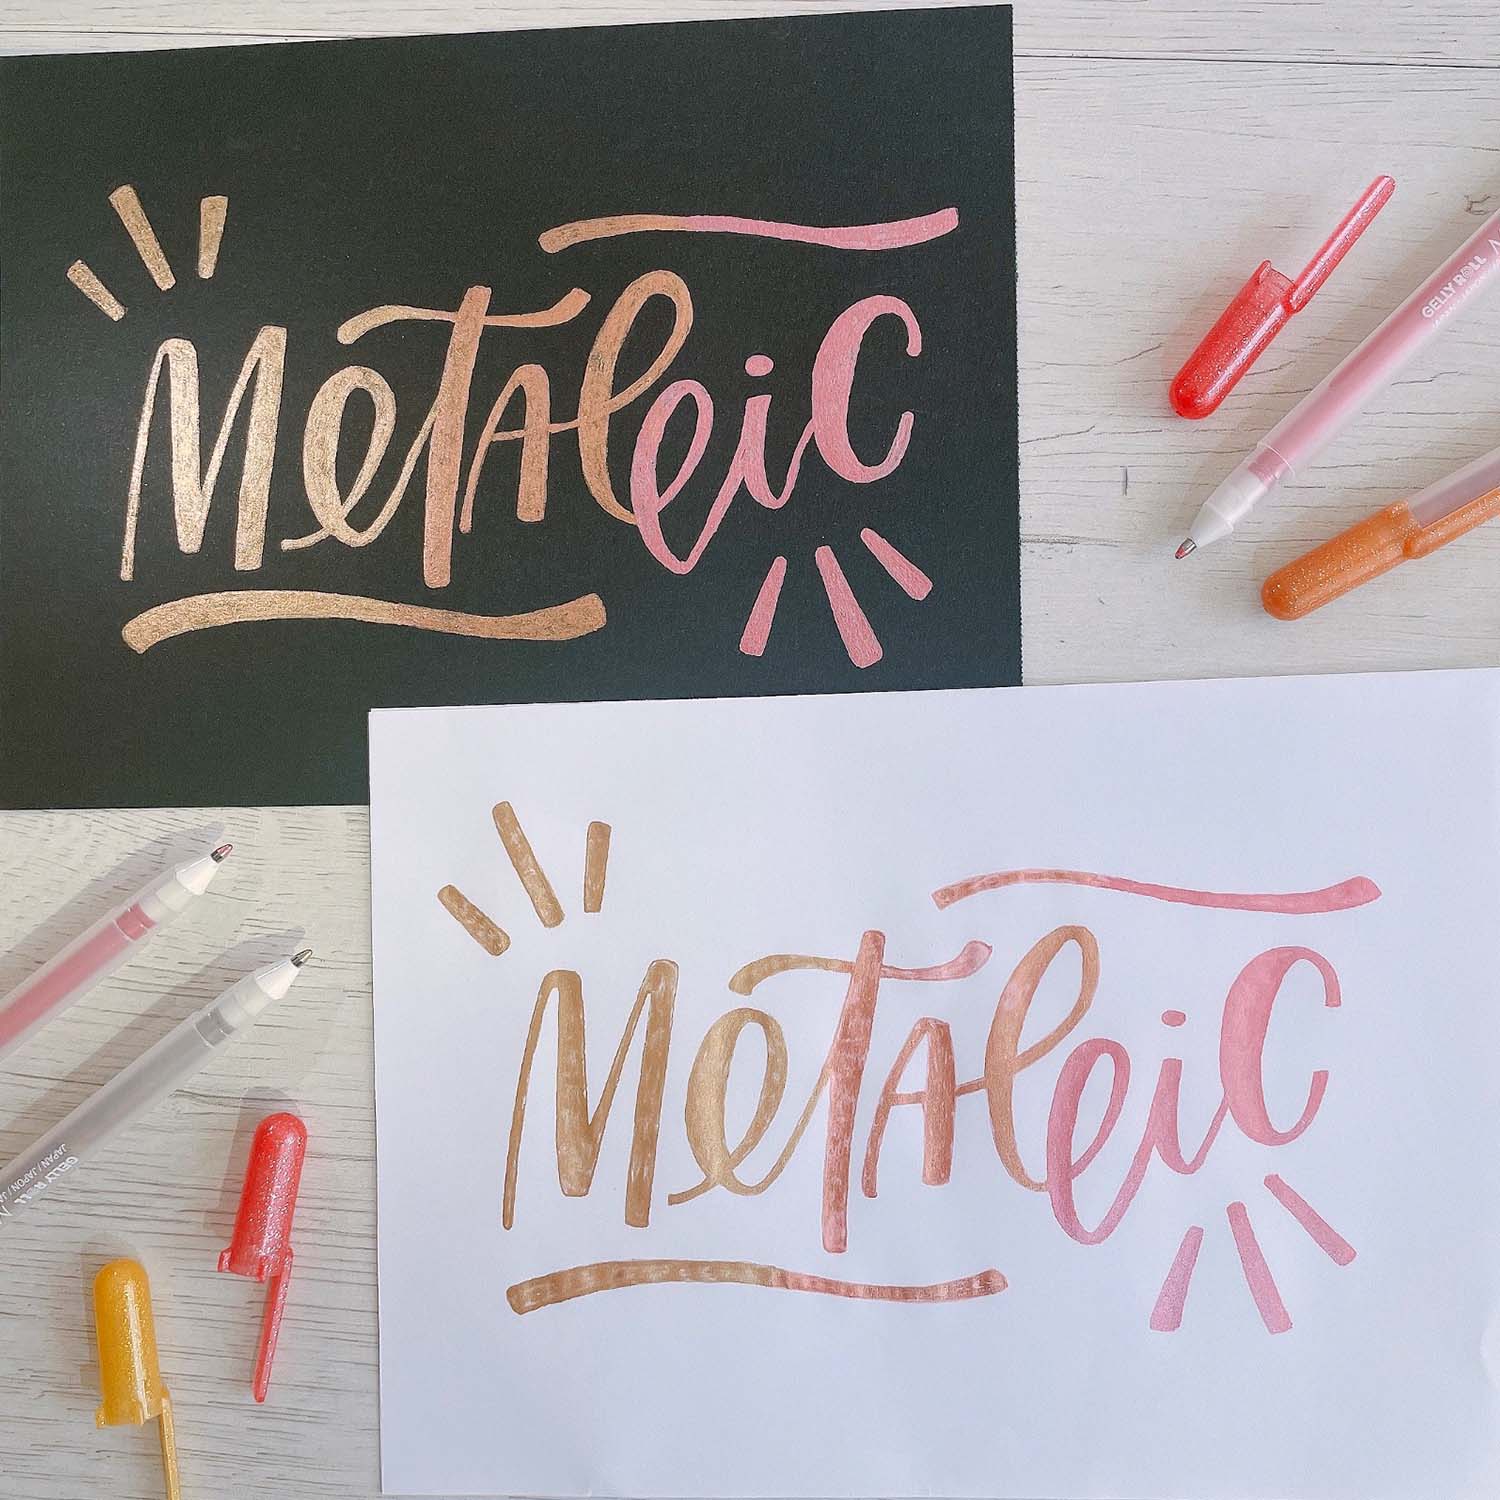 MeTAlliC
GELLY ROLL
MeTAlliC
GELLY ROLL
JAPAN/JAPON